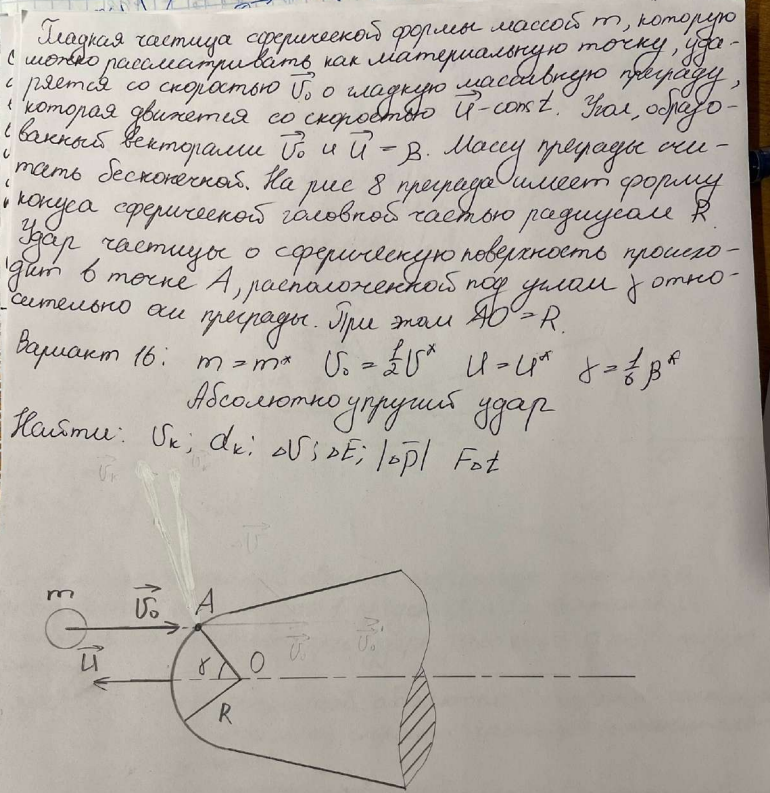 Гладкая частица сферической формы массой m, которую
можно рассматривать как материальную точку, уда-
ряется со скоростью V₀ о гладкую массивную преграду,
которая движется со скоростью U - const. Угол, образо-
ванный векторами V₀ и U - β. Массу преграды счи-
тать бесконечной. На рис 8 преграда имеет форму
конуса сферической головной частью радиусом R.
Удар частицы о сферическую поверхность происхо-
дит в точке A, расположенной под углом γ отно-
сительно оси преграды. При этом AO = R.
Вариант 16: m = m* V₀ = 1/2 V* U = U* γ = 1/6 β*
Абсолютно упругий удар
Найти: Vк; αк; ΔV; ΔE; |Δp| FΔt
m V₀ A
U γ O
R